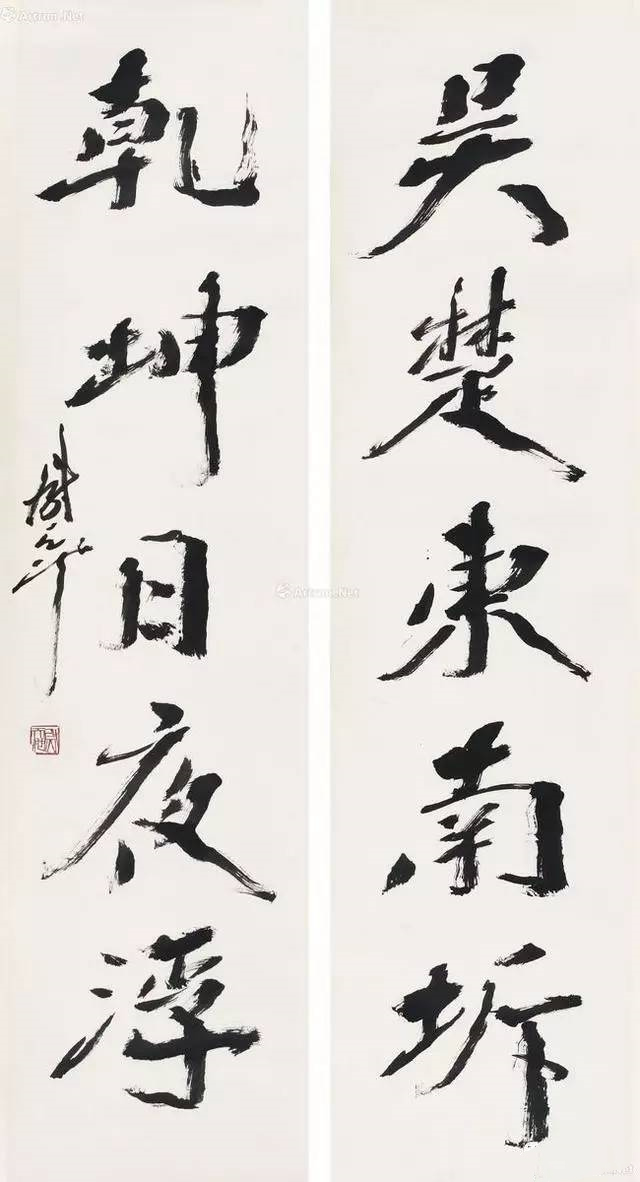 吴楚東南坼
乾坤日夜浮
Artron.Net
Artron.Net